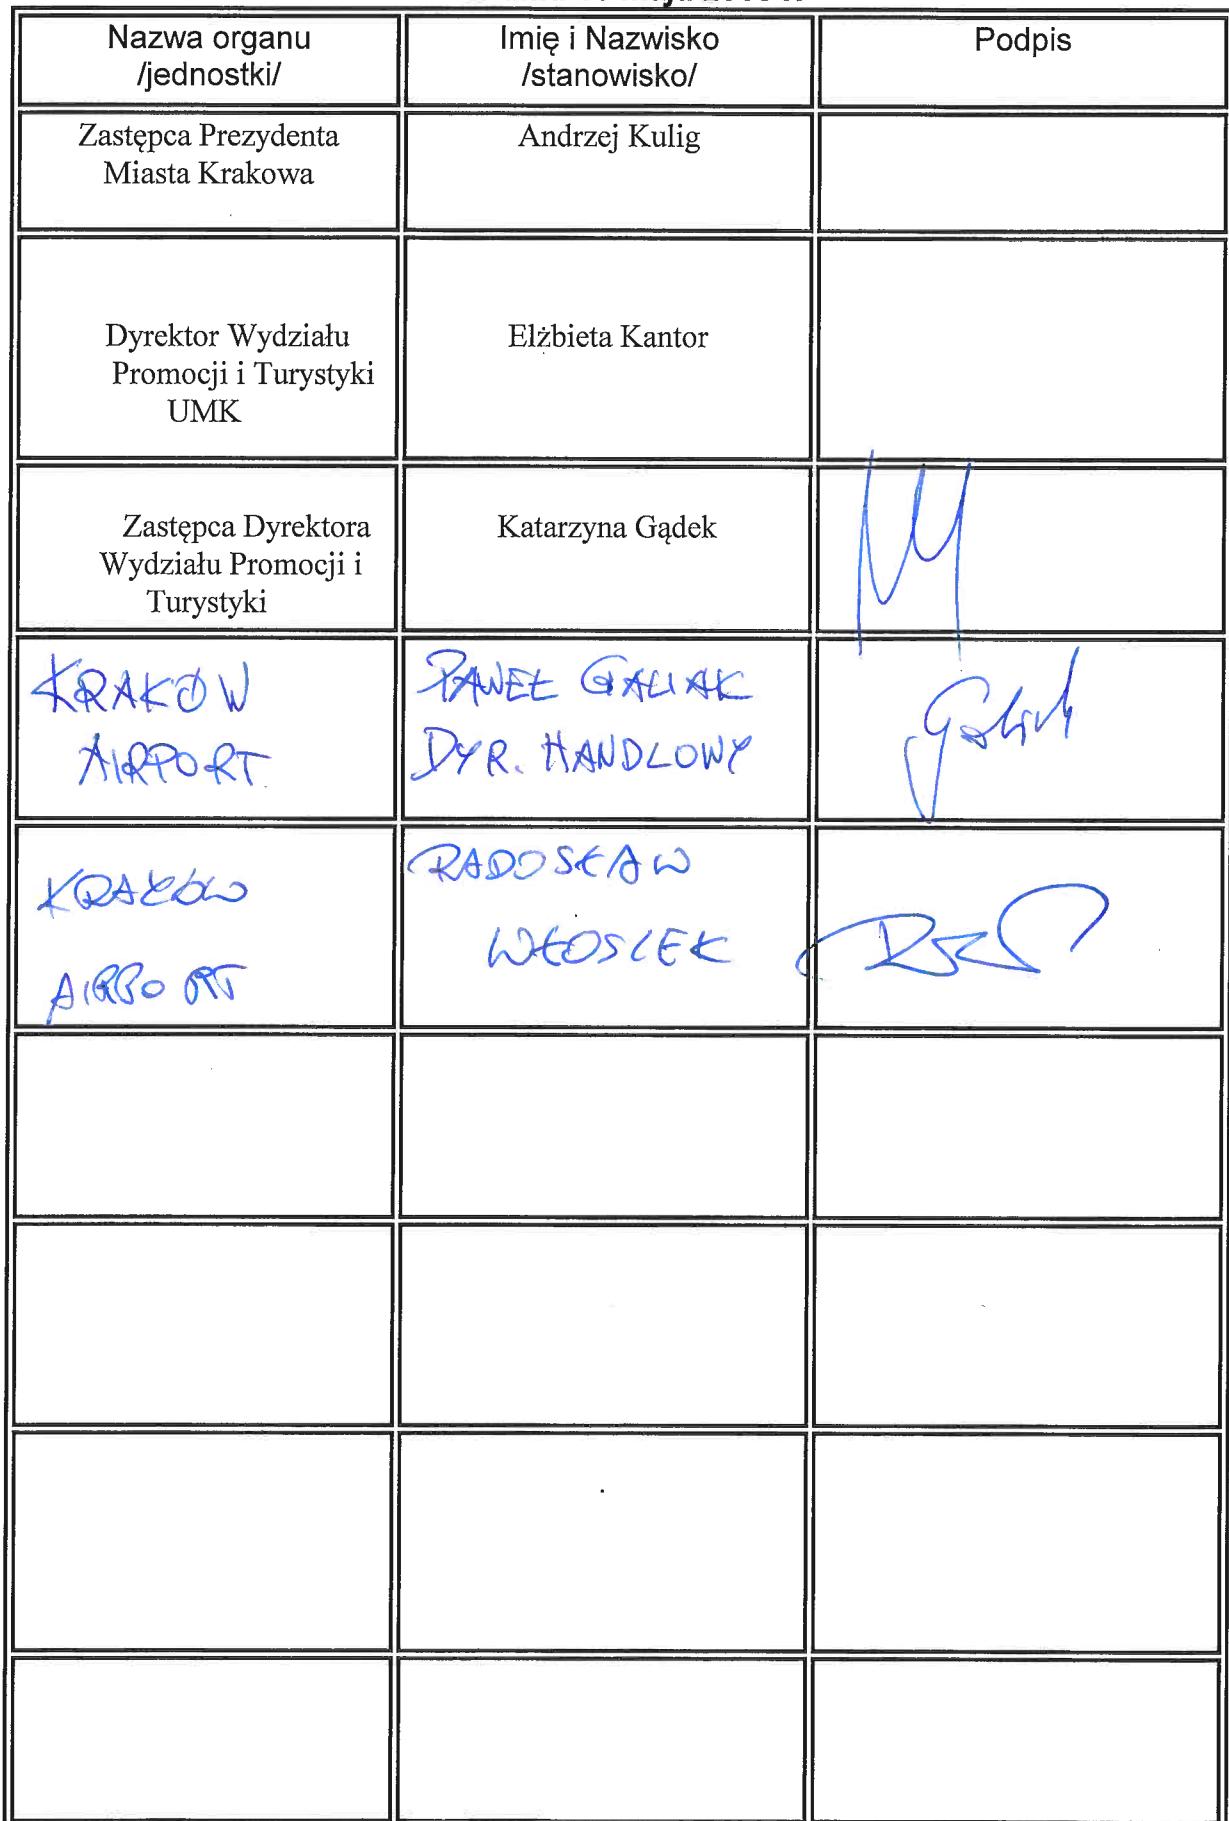 Nazwa organu
/jednostki/
Imię i Nazwisko
/stanowisko/
Podpis
Zastępca Prezydenta
Miasta Krakowa
Andrzej Kulig
Dyrektor Wydziału
Promocji i Turystyki
UMK
Elżbieta Kantor
Zastępca Dyrektora
Wydziału Promocji i
Turystyki
Katarzyna Gądek
KRAKÓW
AIRPORT
PAWEŁ GALIAK
DYR. HANDLOWY
KRAKÓW
AIRPORT
RADOSŁAW
WŁOSZEK